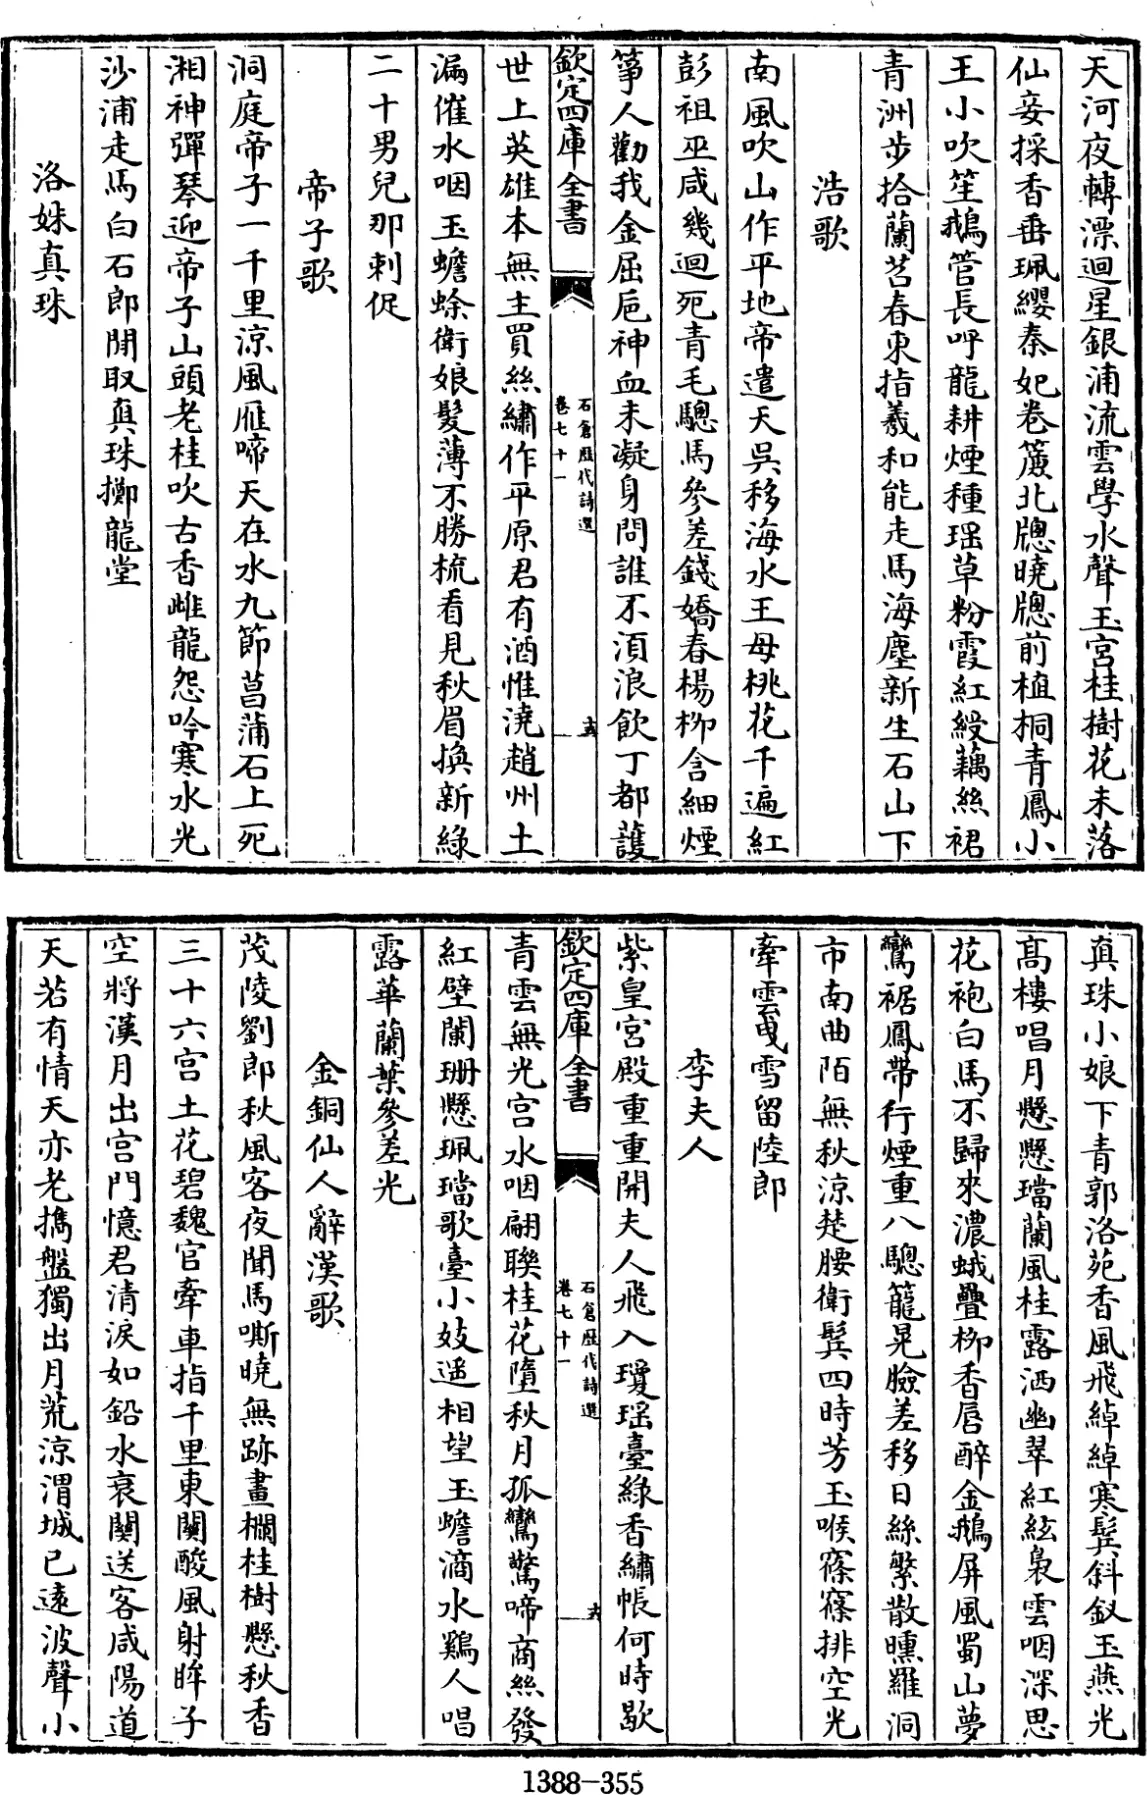 天河夜轉漂迴星銀浦流雲學水聲玉宮桂樹花未落
仙妾採香垂珮纓秦妃卷簾北牕曉牕前植桐青鳳小
王小吹笙鵝管長呼龍耕煙種瑶草粉霞紅綬藕絲裙
青洲步拾蘭苕春東指羲和能走馬海塵新生石山下
浩歌
南風吹山作平地帝遣天吳移海水王母桃花千遍紅
彭祖巫咸幾迴死青毛驄馬參差錢嬌春楊栁含細煙
箏人勸我金屈巵神血未凝身問誰不湏浪飲丁都䕶
欽定四庫全書
石倉歷代詩選
卷七十一
十五
世上英雄本無主買絲繡作平原君有酒惟澆趙州土
漏催水咽玉蟾蜍衛娘髮薄不勝梳看見秋眉換新綠
二十男兒那刺促
帝子歌
洞庭帝子一千里涼風雁啼天在水九節菖蒲石上死
湘神彈琴迎帝子山頭老桂吹古香雌龍怨吟寒水光
沙浦走馬白石郎閒取真珠擲龍堂
洛姝真珠
真珠小娘下青郭洛苑香風飛綽綽寒鬂斜釵玉燕光
髙樓唱月懸懸璫蘭風桂露洒幽翠紅絃裊雲咽深思
花袍白馬不歸來濃蛾疊栁香唇醉金鵝屏風蜀山夢
鸞裾鳳帶行煙重八驄籠晃臉差移日絲繁散曛羅洞
市南曲陌無秋涼楚腰衛鬂四時芳玉喉窱窱排空光
牽雲曵雪留陸郎
李夫人
紫皇宮殿重重開夫人飛入瓊瑶臺綠香繡帳何時歇
欽定四庫全書
石倉歷代詩選
卷七十一
十六
青雲無光宮水咽翩聯桂花墮秋月孤鸞驚啼商絲發
紅壁闌珊懸珮璫歌臺小妓遥相望玉蟾滴水鷄人唱
露華蘭葉參差光
金銅仙人辭漢歌
茂陵劉郎秋風客夜聞馬嘶曉無跡畫欄桂樹懸秋香
三十六宮土花碧魏官牽車指千里東關酸風射眸子
空將漢月出宮門憶君清淚如鉛水衰闌送客咸陽道
天若有情天亦老擕盤獨出月荒涼渭城已遠波聲小
1388-355